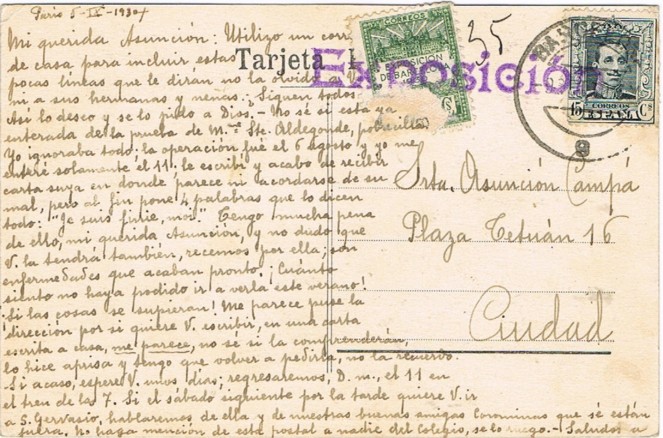 Paris 5-IX-1930
Mi querida Asunción: Utilizo un
de casa para incluir, estas
pocas líneas que le diran no la olvido a V.
ni a sus hermanas y nenas. ¿Siguen todos
Así lo deseo y se lo pido a Dios. - No sé si está ya
enterada de la prueba de M. Ste. Aldegonde, pobrecilla
Yo ignoraba todo; la operación fué el 6 agosto y yo me
enteré solamente el 11; le escribí y acabo de recibir
carta suya en donde parece ni acordarse de su
mal, pero al fin pone 4 palabras que lo dicen
todo: "Je suis finie, moi." Tengo mucha pena
de ello, mi querida Asunción, y no dudo que
V. la tendrá también, recemos por ella; son
enfermedades que acaban pronto. ¡Cuánto
siento no haya podido ir a verla este verano!
Si las cosas se supieran! Me parece puse la
dirección por si quiere V. escribir, en una carta
escrita a casa, me parece, no sé si la comprenderán,
lo hice aprisa y tengo que volver a pedirla, no la recuerdo.
Si acaso, espere V. unos días; regresaremos, D. m., el 11 en
el tren de las 7. Si el sábado siguiente por la tarde quiere V. ir
a S. Gervasio, hablaremos de ella y de nuestras buenas amigas Corominas que sé están
fuera. No haga mención de esta postal a nadie del Colegio, se lo ruego. - Saludos a
Tarjeta
Exposición
CORREOS
EXPOSICION
DE BARCELONA
35
15 CORREOS Cs
ESPAÑA
Srta. Asunción Campá
Plaza Tetuán 16
Ciudad